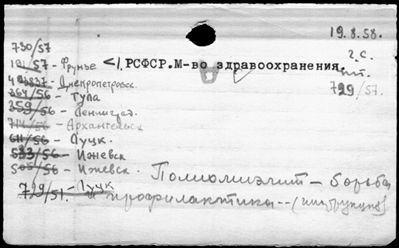 19.8.58.
730/57
181/57 - Фрунзе <1. РСФСР. М-во здравоохранения.
г.с.
Днепропетровск.
пт.
729/57.
364/56 - Тула
359/56 - Ленинград.
714/56 - Архангельск
611/56 - Луцк.
533/56 - Ижевск
505/56 - Ижевск. Полиомиэлит - борьба
729/57. - Луцк и профилактика -- (инструкция)